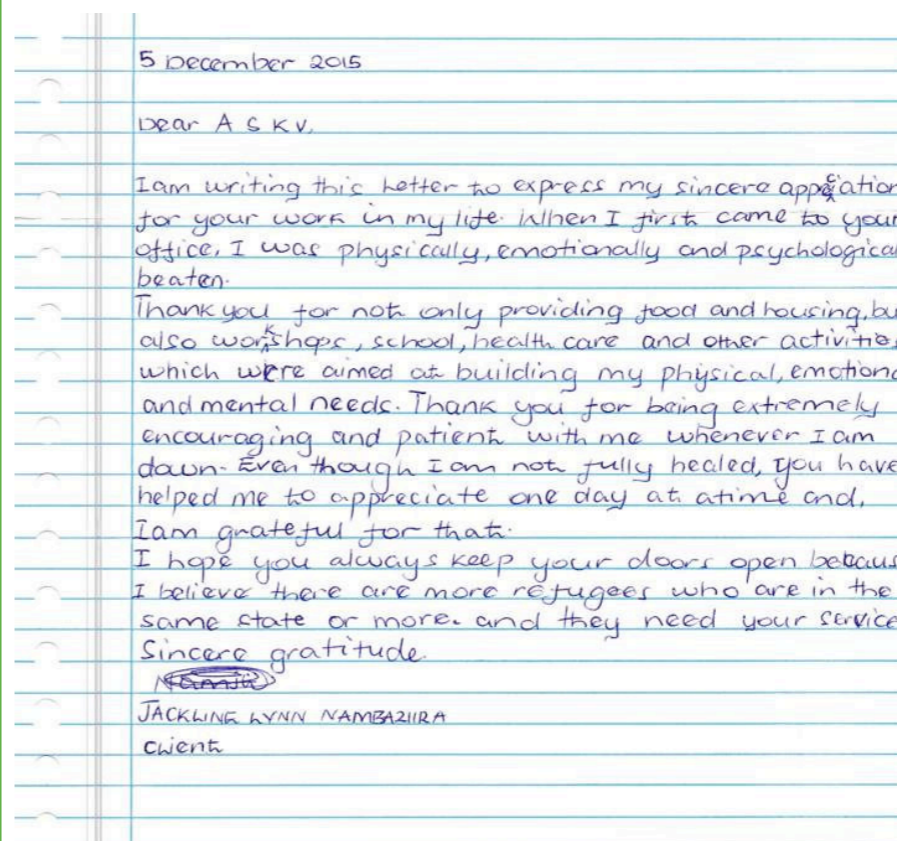 5 December 2015
Dear A S K V,
I am writing this letter to express my sincere appreciation
for your work in my life. When I first came to your
office, I was physically, emotionally and psychological
beaten.
Thank you for not only providing food and housing, bu
also workshops, school, health care and other activitie
which were aimed at building my physical, emotiona
and mental needs. Thank you for being extremely
encouraging and patient with me whenever I am
down. Even though I am not fully healed, you have
helped me to appreciate one day at atime and,
I am grateful for that.
I hope you always keep your doors open becaus
I believe there are more refugees who are in the
same state or more. and they need your service
Sincere gratitude
JACKLINE LYNN NAMBAZIIRA
Client